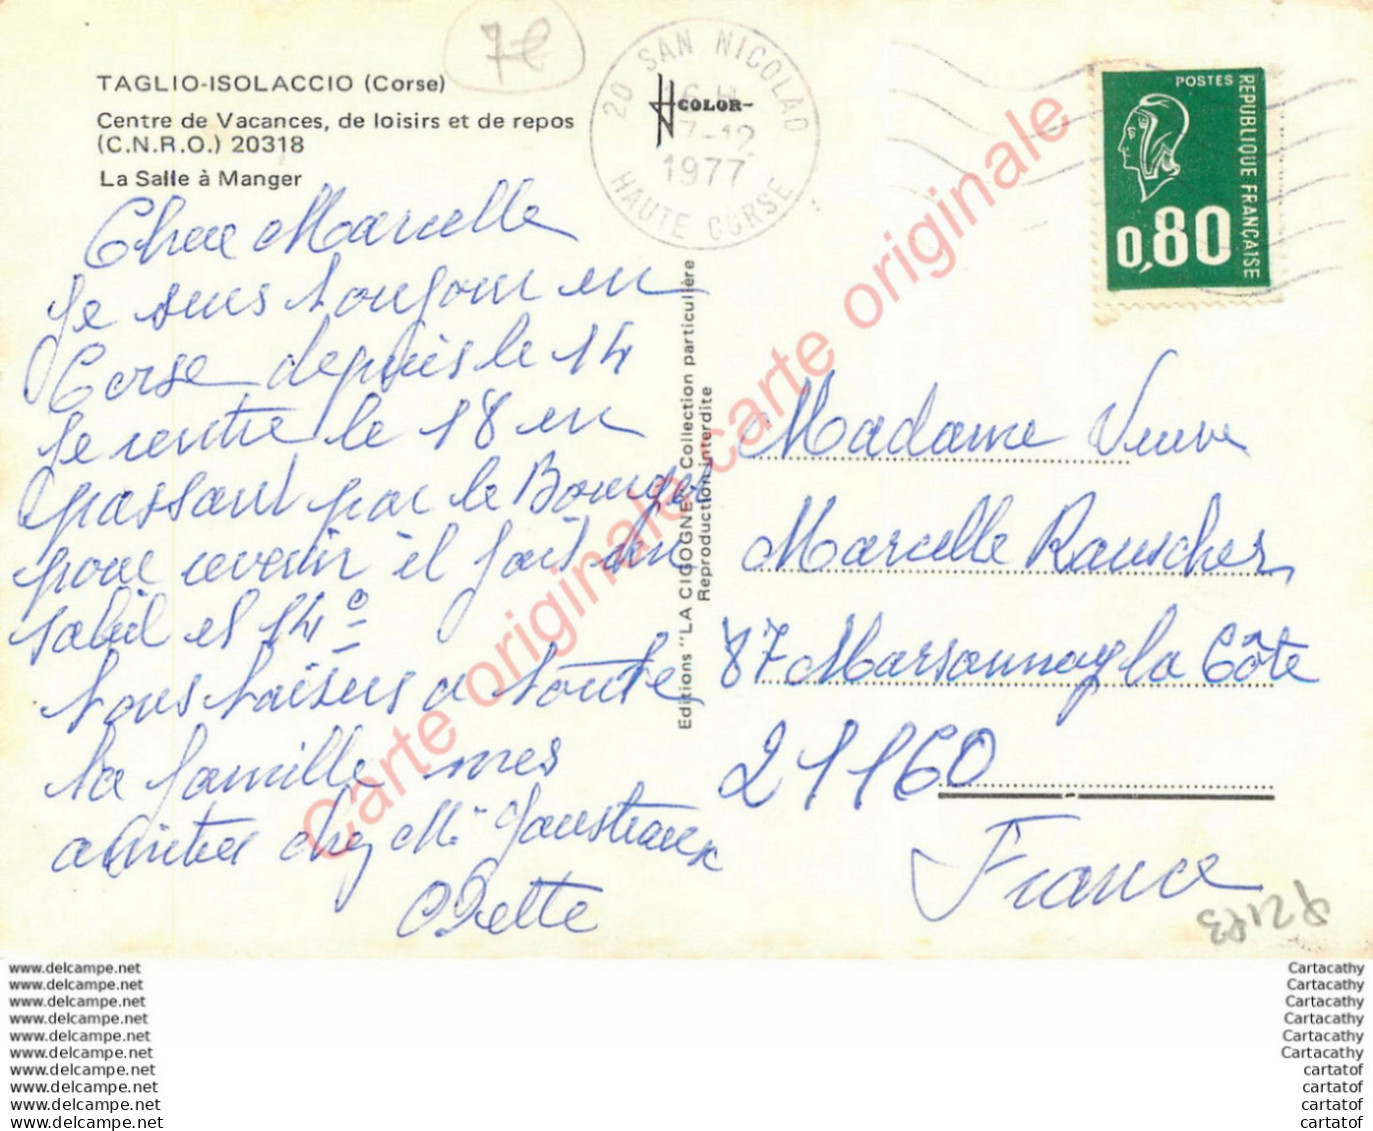 7€
TAGLIO-ISOLACCIO (Corse)
Centre de Vacances, de loisirs et de repos
(C.N.R.O.) 20318
La Salle à Manger
COLOR-
20 SAN NICOLAO
16 H
7-12
1977
HAUTE CORSE
POSTES
REPUBLIQUE FRANÇAISE
0,80
Chere Marcelle
Je suis toujour en
Corse depuis le 14
je rentre le 18 en
passant par le Bourget
pour revenir il fait du
soleil et 14°
tous baisers a toute
la famille mes
amities chez Mr
Odette
Editions "LA CIGOGNE" Collection particulière
Reproduction interdite
Carte originale carte originale
Madame Veuve
Marcelle Rauscher
87 Marsannay la Côte
21160
France
www.delcampe.net
www.delcampe.net
www.delcampe.net
www.delcampe.net
www.delcampe.net
www.delcampe.net
www.delcampe.net
www.delcampe.net
www.delcampe.net
www.delcampe.net
Cartacathy
Cartacathy
Cartacathy
Cartacathy
Cartacathy
Cartacathy
cartatof
cartatof
cartatof
cartatof